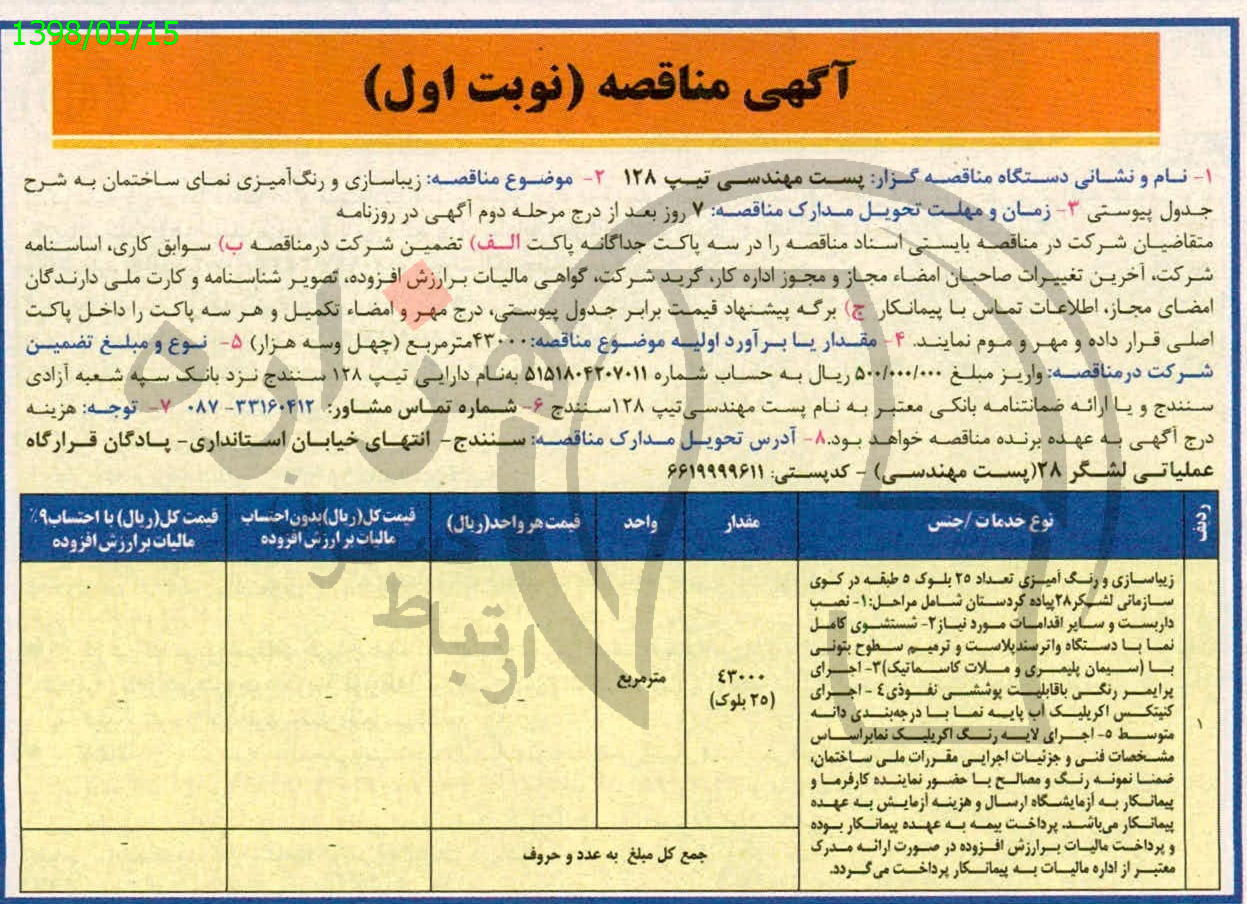 1398/05/15
آگهی مناقصه (نوبت اول)
۱- نام و نشانی دستگاه مناقصه گزار: پست مهندسی تیپ ۱۲۸ ۲- موضوع مناقصه: زیباسازی و رنگ‌آمیزی نمای ساختمان به شرح
جدول پیوستی ۳- زمان و مهلت تحویل مدارک مناقصه: ۷ روز بعد از درج مرحله دوم آگهی در روزنامه
متقاضیان شرکت در مناقصه بایستی اسناد مناقصه را در سه پاکت جداگانه پاکت الف) تضمین شرکت درمناقصه ب) سوابق کاری، اساسنامه
شرکت، آخرین تغییرات صاحبان امضاء مجاز و مجوز اداره کار، گرید شرکت، گواهی مالیات برارزش افزوده، تصویر شناسنامه و کارت ملی دارندگان
امضای مجاز، اطلاعات تماس با پیمانکار ج) برگه پیشنهاد قیمت برابر جدول پیوستی، درج مهر و امضاء تکمیل و هر سه پاکت را داخل پاکت
اصلی قرار داده و مهر و موم نمایند. ۴- مقدار یا برآورد اولیه موضوع مناقصه: ۴۳۰۰۰مترمربع (چهل وسه هزار) ۵- نوع و مبلغ تضمین
شرکت درمناقصه: واریز مبلغ ۵۰۰/۰۰۰/۰۰۰ ریال به حساب شماره ۵۱۵۱۸۰۴۲۰۷۰۱۱ به‌نام دارایی تیپ ۱۲۸ سنندج نزد بانک سپه شعبه آزادی
سنندج و یا ارائه ضمانتنامه بانکی معتبر به نام پست مهندسی‌تیپ ۱۲۸سنندج ۶- شماره تماس مشاور: ۳۳۱۶۰۴۱۲- ۰۸۷ ۷- توجه: هزینه
درج آگهی به عهده برنده مناقصه خواهد بود.۸- آدرس تحویل مدارک مناقصه: سنندج- انتهای خیابان استانداری- پادگان قرارگاه
عملیاتی لشگر ۲۸(پست مهندسی) - کدپستی: ۶۶۱۹۹۹۹۶۱۱
ردیف
نوع خدمات /جنس
مقدار
واحد
قیمت هر واحد(ریال)
قیمت کل(ریال)بدون احتساب
مالیات بر ارزش افزوده
قیمت کل(ریال) با احتساب۹٪
مالیات بر ارزش افزوده
۱
زیباسازی و رنگ آمیزی تعداد ۲۵ بلوک ۵ طبقه در کوی
سازمانی لشکر۲۸پیاده کردستان شامل مراحل:۱- نصب
داربست و سایر اقدامات مورد نیاز۲- شستشوی کامل
نما با دستگاه واترسندبلاست و ترمیم سطوح بتونی
با (سیمان پلیمری و ملات کاسماتیک)۳- اجرای
پرایمر رنگی باقابلیت پوششی نفوذی٤ - اجرای
کنیتکس اکریلیک آب پایه نما با درجه‌بندی دانه
متوسط ۵- اجرای لایه رنگ اکریلیک نمابراساس
مشخصات فنی و جزئیات اجرایی مقررات ملی ساختمان،
ضمنا نمونه رنگ و مصالح با حضور نماینده کارفرما و
پیمانکار به آزمایشگاه ارسال و هزینه آزمایش به عهده
پیمانکار می‌باشد. پرداخت بیمه به عهده پیمانکار بوده
و پرداخت مالیات برارزش افزوده در صورت ارائه مدرک
معتبر از اداره مالیات به پیمانکار پرداخت می گردد.
٤٣٠٠٠
(۲۵ بلوک)
مترمربع
جمع کل مبلغ به عدد و حروف